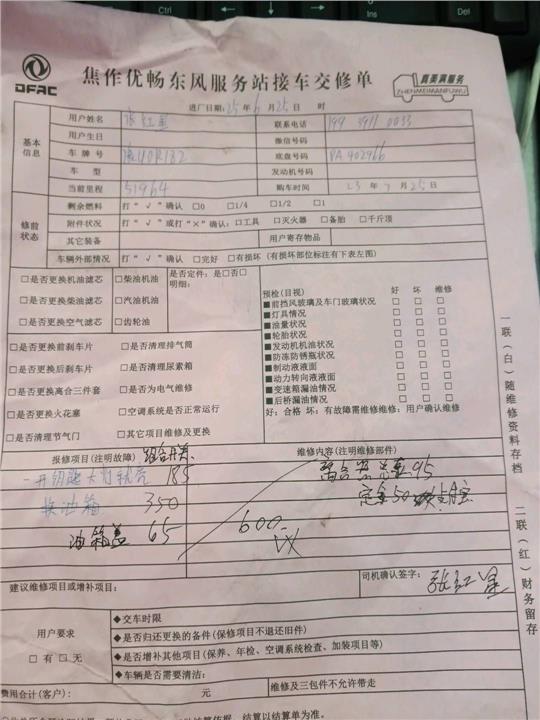 Ctrl
Ins
Del
DFAC
焦作优畅东风服务站接车交修单
真美满服务
ZHENMEIMANFUWU
进厂日期:25年6月25日 时
基本信息
用户姓名
联系电话 199 3911 0033
用户生日
微信号码
车牌号
底盘号码 PA902966
车型
发动机号码
当前里程 51964
购车时间 23年7月25日
修前状态
剩余燃料 打“√”确认 □0 □1/4 □1/2 □1
附件状况 打“√”或打“×”确认:□工具 □灭火器 □备胎 □千斤顶
其它装备
用户寄存物品
车辆外部情况 打“√”确认 □完好 □有损坏(有损坏部位标注有下表左图)
□是否更换机油滤芯 □柴油机油 是否定件:是□否□
明细:
□是否更换柴油滤芯 □汽油机油
□是否更换空气滤芯 □齿轮油
预检(目视) 好 坏 维修
■前挡风玻璃及车门玻璃状况 □ □ □
■灯具情况 □ □ □
■油量状况 □ □ □
■轮胎状况 □ □ □
■发动机机油状况 □ □ □
■防冻防锈瓶状况 □ □ □
■制动液液面 □ □ □
■动力转向液液面 □ □ □
■变速箱漏油情况 □ □ □
■后桥漏油情况 □ □ □
好:合格 坏:有故障需维修维用:用户确认维修
□是否更换前刹车片 □是否清理排气筒
□是否更换后刹车片 □是否清理尿素箱
□是否更换离合三件套 □是否为电气维修
□是否更换火花塞 □空调系统是否正常运行
□是否清理节气门 □其它项目维修及更换
报修项目(注明故障) 组合开关
维修内容(注明维修部件)
185
离合 总泵 95
换油箱 350
定金50
油箱盖 65
600
建议维修项目或增补项目:
司机确认签字: 张红星
用户要求
□有 □无
◆交车时限
◆是否归还更换的备件(保修项目不退还旧件)
◆是否增补其他项目(保养、年检、空调系统检查、加装项目等)
◆车辆是否需要清洁:
费用合计(客户): 元
维修及三包件不允许带走
结算以结算单为准。
一联(白)随维修资料存档
二联(红)财务留存